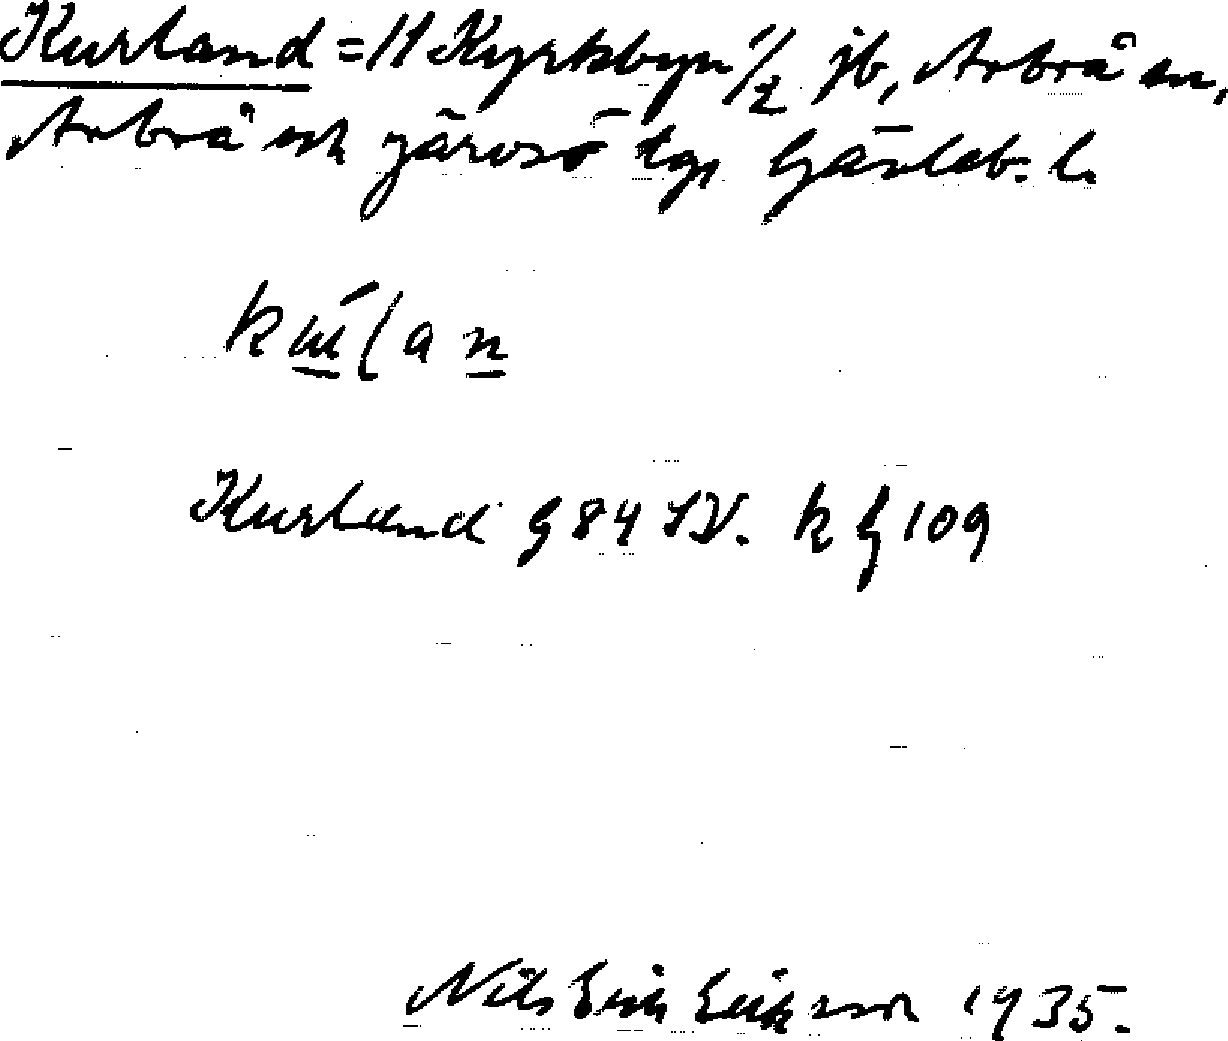 Kurland = 11 Kyrkbyn 1/2 jb, Arbrå sn,
Arbrå och Järvsö tg, Gävleb. l.
Kurland G 84 IV. k G 109
Nils Erik Eriksson 1935.